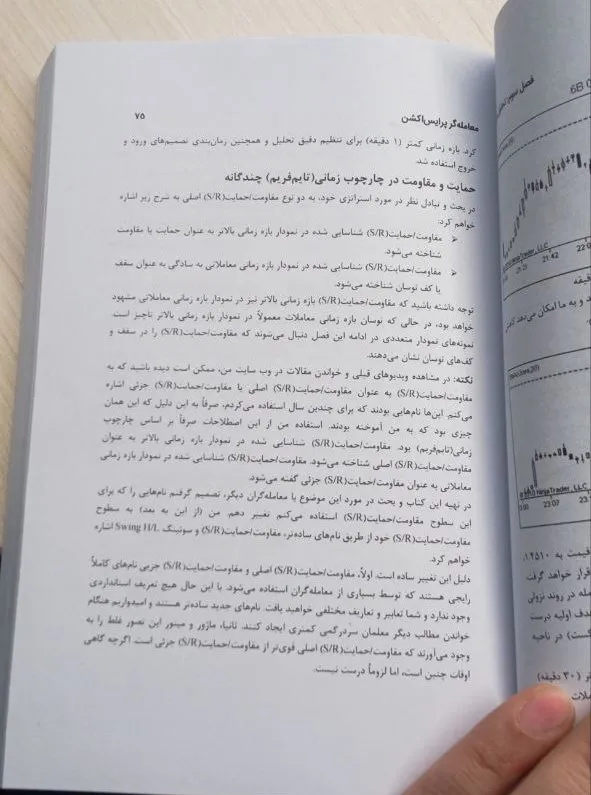 معامله‌گر پرایس‌اکشن
۷۵
کرد. بازه زمانی کمتر (۱ دقیقه) برای تنظیم دقیق تحلیل و همچنین زمان‌بندی تصمیم‌های ورود و
خروج استفاده شد.
حمایت و مقاومت در چارچوب زمانی(تایم‌فریم) چندگانه
در بحث و تبادل نظر در مورد استراتژی خود، به دو نوع مقاومت/حمایت(S/R) اصلی به شرح زیر اشاره
خواهم کرد:
مقاومت/حمایت(S/R) شناسایی شده در نمودار بازه زمانی بالاتر به عنوان حمایت یا مقاومت
شناخته می‌شود.
مقاومت/حمایت(S/R) شناسایی شده در نمودار بازه زمانی معاملاتی به سادگی به عنوان سقف
یا کف نوسان شناخته می‌شود.
توجه داشته باشید که مقاومت/حمایت(S/R) بازه زمانی بالاتر نیز در نمودار بازه زمانی معاملاتی مشهود
خواهد بود، در حالی که نوسان بازه زمانی معاملات معمولاً در نمودار بازه زمانی بالاتر ناچیز است.
نمونه‌های نمودار متعددی در ادامه این فصل دنبال می‌شوند که مقاومت/حمایت(S/R) را در سقف و
کف‌های نوسان نشان می‌دهند.
نکته: در مشاهده ویدیوهای قبلی و خواندن مقالات در وب سایت من، ممکن است دیده باشید که به
مقاومت/حمایت(S/R) به عنوان مقاومت/حمایت(S/R) اصلی یا مقاومت/حمایت(S/R) جزئی اشاره
می‌کنم. این‌ها نام‌هایی بودند که برای چندین سال استفاده می‌کردم، صرفاً به این دلیل که این همان
چیزی بود که به من آموخته بودند. استفاده من از این اصطلاحات صرفاً بر اساس چارچوب
زمانی(تایم‌فریم) بود. مقاومت/حمایت(S/R) شناسایی شده در نمودار بازه زمانی بالاتر به عنوان
مقاومت/حمایت(S/R) اصلی شناخته می‌شود. مقاومت/حمایت(S/R) شناسایی شده در نمودار بازه زمانی
معاملاتی به عنوان مقاومت/حمایت(S/R) جزئی گفته می‌شود.
در تهیه این کتاب و بحث در مورد این موضوع با معامله‌گران دیگر، تصمیم گرفتم نام‌هایی را که برای
این سطوح مقاومت/حمایت(S/R) استفاده می‌کنم تغییر دهم. من (از این به بعد) به سطوح
مقاومت/حمایت(S/R) خود از طریق نام‌های ساده‌تر، مقاومت/حمایت(S/R) و سوئینگ Swing H/L اشاره
خواهم کرد.
دلیل این تغییر ساده است. اولاً، مقاومت/حمایت(S/R) اصلی و مقاومت/حمایت(S/R) جزیی نام‌های کاملاً
رایجی هستند که توسط بسیاری از معامله‌گران استفاده می‌شود. با این حال هیچ تعریف استانداردی
وجود ندارد و شما تعابیر و تعاریف مختلفی خواهید یافت نام‌های جدید ساده‌تر هستند و امیدواریم هنگام
خواندن مطالب دیگر معلمان سردرگمی کمتری ایجاد کنند. ثانیا، ماژور و مینور این تصور غلط را به
وجود می‌آورند که مقاومت/حمایت(S/R) اصلی قوی‌تر از مقاومت/حمایت(S/R) جزئی است. اگرچه گاهی
اوقات چنین است، اما لزوماً درست نیست.
6B 0
21:21 21:42 22:0
NinjaTrader, LLC
23:07 23:1
قیمت به ۱.۴۵۱۰
قرار خواهد گرفت
مله در روند نزولی
هدف اولیه درست
گست) در ناحیه
تر (۳۰ دقیقه)